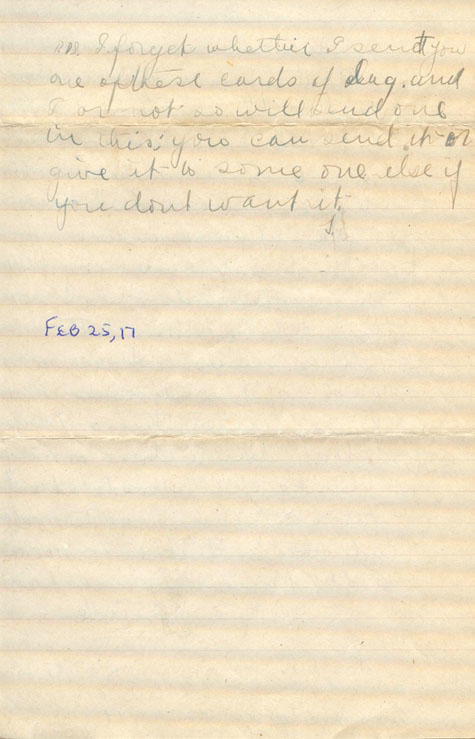 P.S. I forget whether I sent you
one of these cards of Doug. and
I or not so will send one
in this; you can send it or
give it to some one else if
you dont want it.
J.
FEB 25, 17